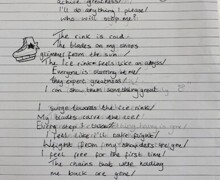 achieve greatness/
I'll do anything I please/
who will stop me?
The rink is cold
The blades on my shoes
glimmer from the sun /
The ice rink feels like an abyss/
Everyone is starting
They expect greatness/
I can show them something great
I surge towards the ice rink/
My blades carve the
Every step I
I feel like I'll take flight/
from my shoulders
I feel free for the first time/
The chains that were
me back are gone/